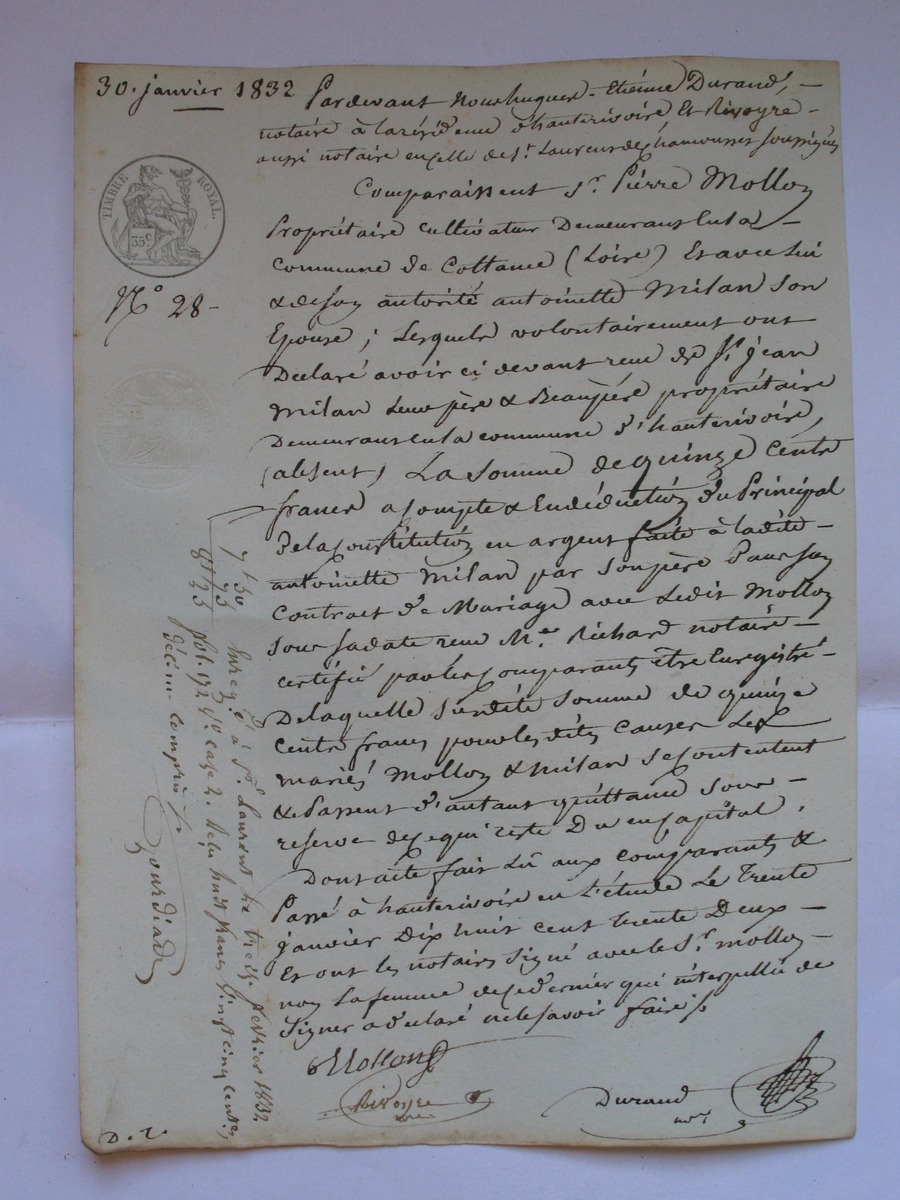 30. janvier 1832
Pardevant Nous hugues - Etienne Durand, -
notaire à la résidence d'hauterivoire Et Rivoyre -
aussi notaire en celle de St. Laurent de chamousset soussignés
TIMBRE ROYAL.
35 c
N° 28-
Comparaissent Sr. Pierre Mollon
Propriétaire cultivateur Demeurant en la -
Commune de Cottance (Loire) Et avec lui
& de son autorité antoinette Milan son
Epouse ; Lesquels volontairement ont
Declaré avoir ci devant reçu de Sr. jean
Milan Leur père & Beaupère propriétaire
Demeurant en la commune d'hauterivoire,
(absent) La Somme de quinze cents
francs a compte & En déduction du Principal
De la Constitution en argent faite à ladite -
antoinette Milan par son père Dans son
Contract de Mariage avec Ledit Mollon
sous sa date reçu Me. Richard notaire -
certifié par les comparants être Enregistré -
De laquelle susdite Somme de quinze
Cents francs pour les dites causes Les
mariés Mollon & Milan se contentent
& Passent d'autant quittance sous -
reserve de ce qui reste Du en capital.
Dont acte fait Lû aux comparants &
Passé à hauterivoire en L'étude Le Trente
janvier Dix huit cent trente Deux -
Et ont les notaires signé avec le Sr. mollon -
non La femme de ce dernier qui interpellée de
Signer a déclaré ne le savoir faire ./.
Mollon
Rivoyre
nre
Durand
nore
D. r.
7 f 50
75
8 f 25
Enregé. à St. Laurent le treize février 1832
fol. 172 vo. case 2. Reçu huit francs vingt cinq centes,
décime compris
Gourdiard